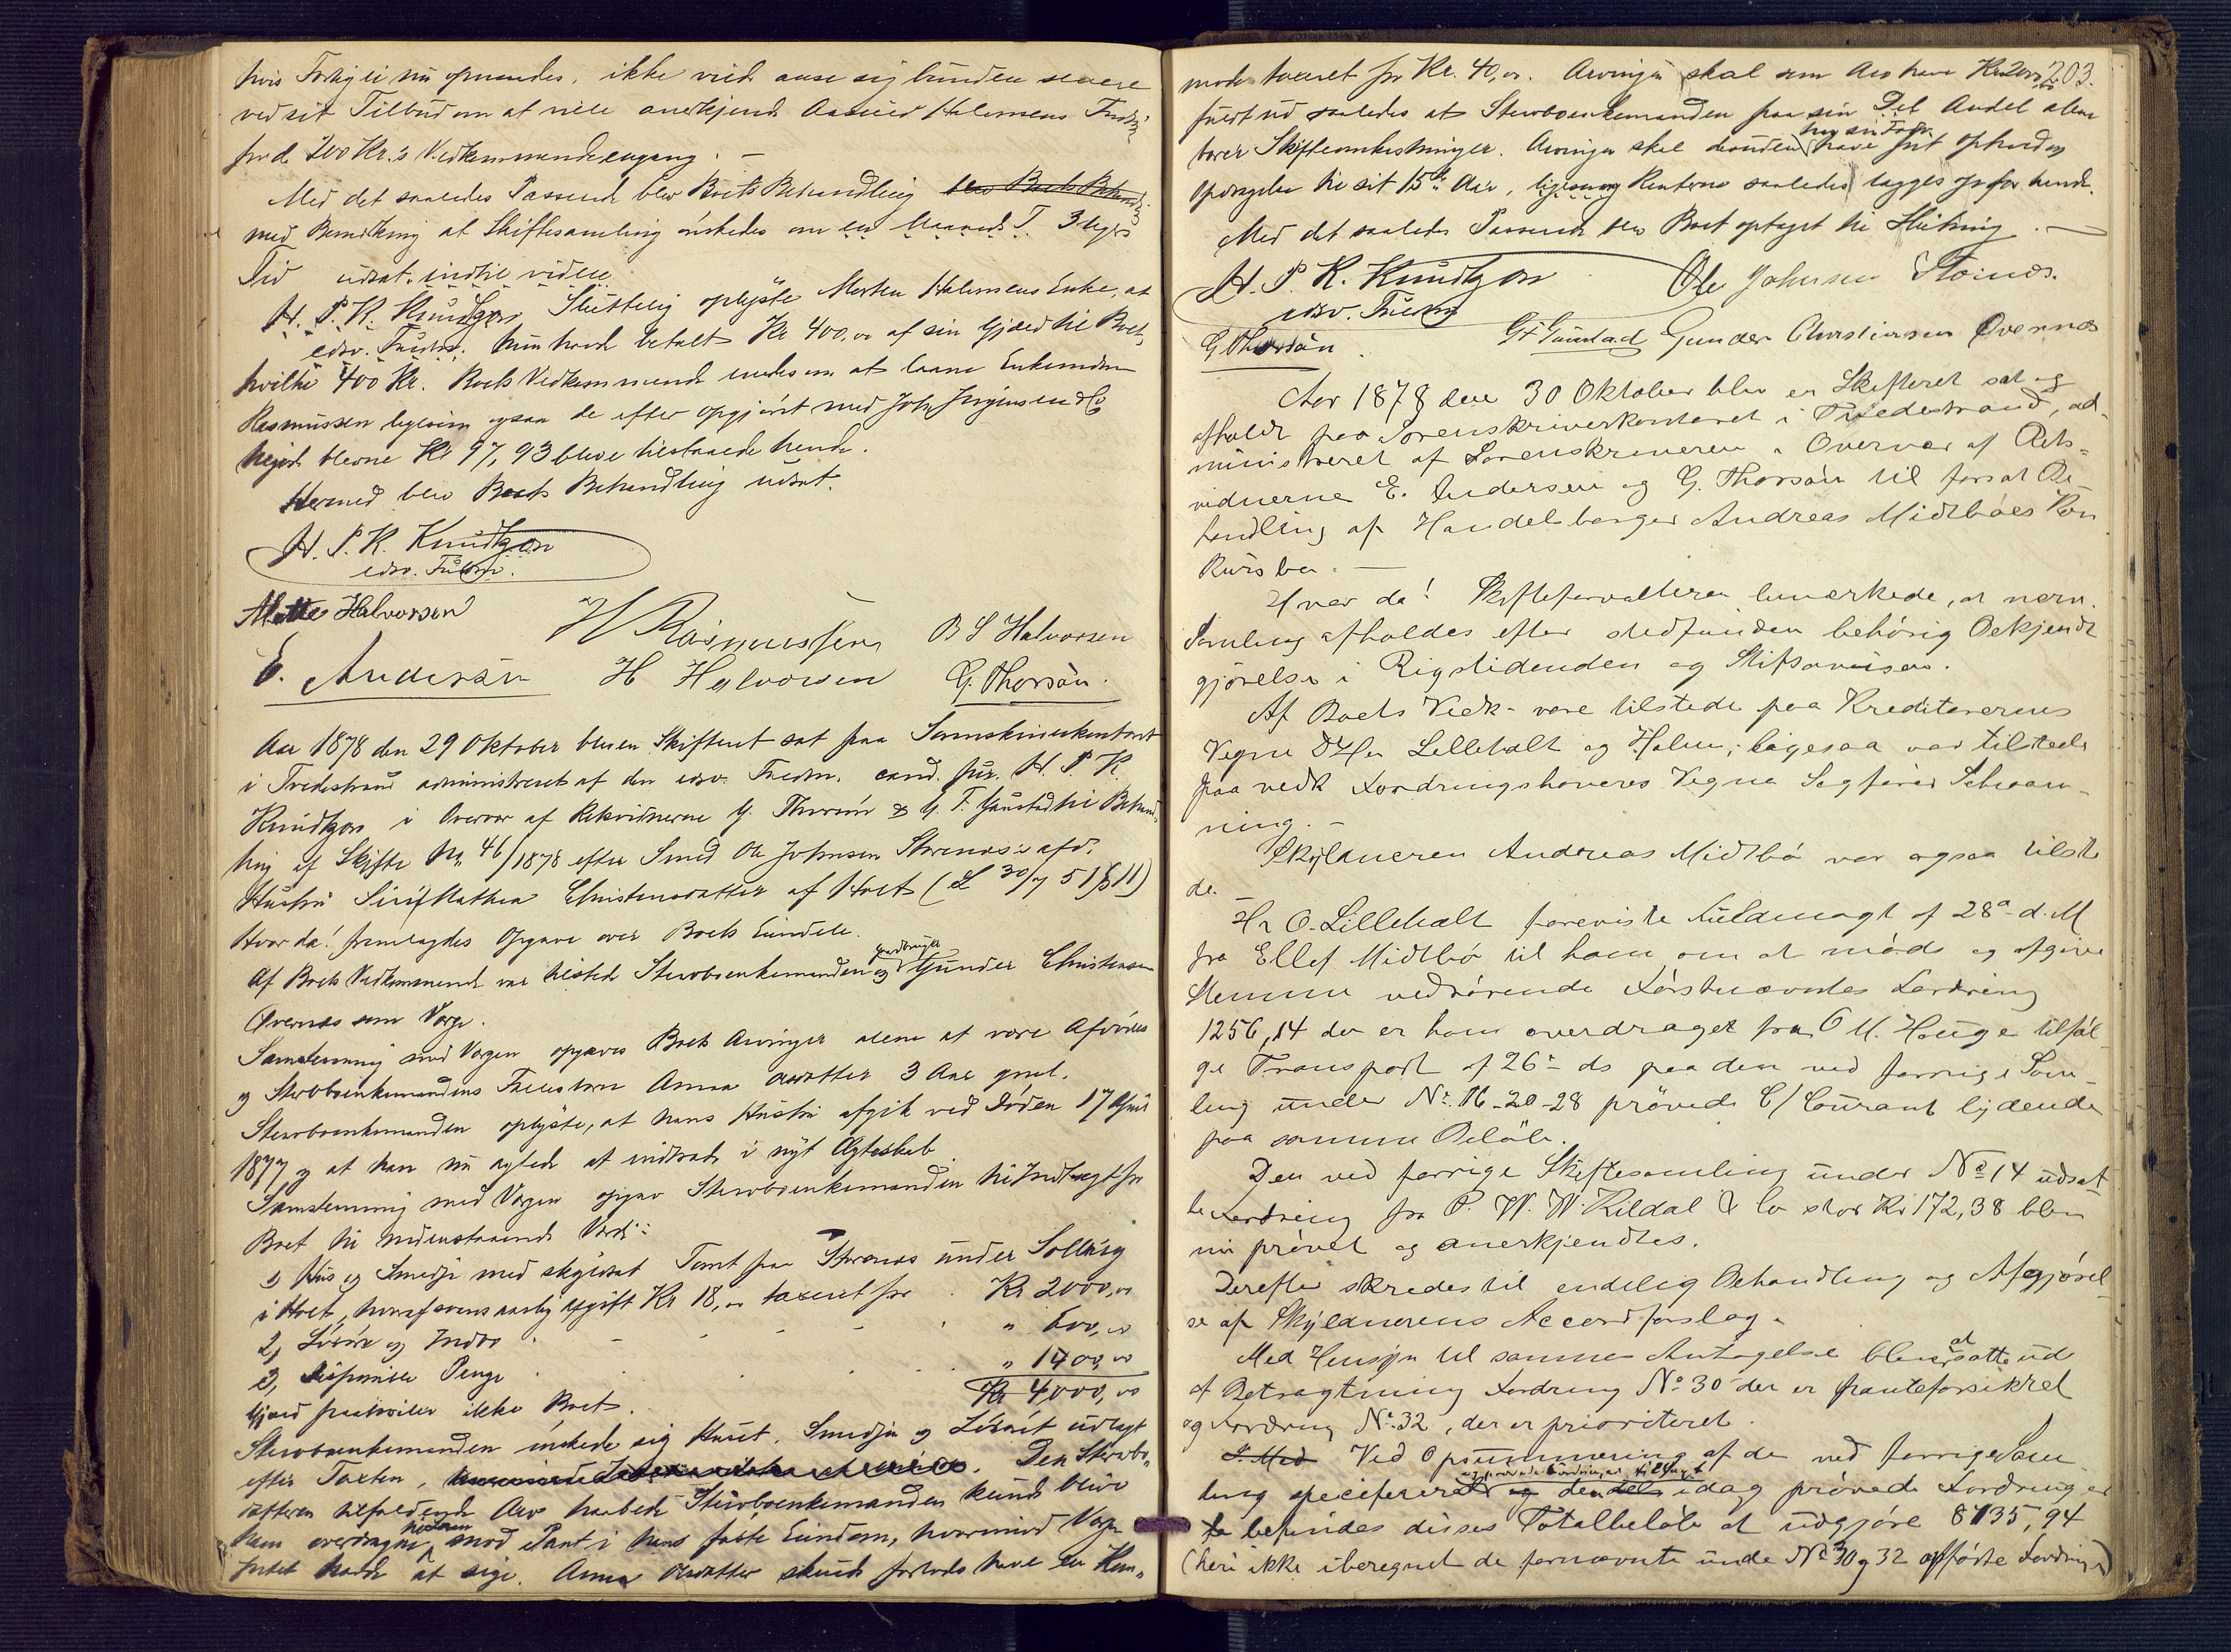 hvis Forlig ei nu opnaaedes, ikke vilde anse sig bunden senere
ved sit Tilbud om at ville anerkjende Halvorsens
for de 200 Kr.s Vedkommende engang. —
Med det saaledes Passerede blev Boets Behandling blev Boets Behand
med Bemærkning at Skiftesamling ønskedes om en Maaneds T. 3 Ugers
Tid udsat indtil videre.
H. P. K. Knudtzon Sluttelig oplyste Morten Halvorsens Enke, at
edsv. Fuldm. hun havde betalt Kr 400,00 af sin Gjæld til Boet,
hvilke 400 Kr. Boets Vedkommende enedes om at laane Enkemanden
Rasmussen ligesom ogsaa de efter Opgjøret med Joh Jørgensen & Co
blevne Kr 97,93 bleve tilstaaede hende.
Hermed blev Boets Behandling udsat.
H. P. K. Knudtzon
edsv. Fuldm.
Halvorsen H Rasmussen B S Halvorsen
E. Andersen H Halvorsen G. Thorsøn.
Aar 1878 den 29 Oktober blev en Skifteret sat paa Sorenskriverkontoret
i Tvedestrand administreret af den edsv. Fuldm. cand. jur. H. P. K.
Knudtzon i Overvær af Retsvidnerne G. Thorsøn & G. F. Gaustad til Behand
ling af Skifte No 46/1878 efter Smed Ole Johnsen Størnes's afd.
Hustru Siri Mathea Christensdatter af Holt (L 30/7 51 § 11)
Hvor da! fremlagdes Opgave over Boets Eiendele.
Af Boets Vedkommende var tilstede Stervboenkemanden og Gaardbruger Gunder Christensen
Øvernæs som Værge.
Samstemmig med Værgen opgaves Boets Arvinger alene at være Afdødes
og Stervboenkemandens Fællesbarn Anna Olsdatter 3 Aar gml.
Stervboenkemanden oplyste, at hans Hustru afgik ved Døden 17 April
1877 og at han nu agtede at indtræde i nyt Ægteskab.
Samstemmig med Værgen opgav Stervboenkemanden til Indtægt for
Boet til nedenstaaende Værdi:
1, Hus og Smedje med skyldsat Tomt paa Størnes under Solberg
i Holt, hvoraf svares aarlig Afgift Kr 18,00 taxeret for . Kr 2000,00
2, Løsøre og Indbo . - - - - . " 600,00
3, Penge . . . . " 1400,00
Kr 4000,00
Gjæld paahviler ikke Boet.
Stervboenkemanden ønskede sig Huset, Smedjen og Løsøret udlagt
efter Taxten, . Den Stervbo-
datteren tilfaldende Arv haabede Stervboenkemanden kunde blive
ham overdragen, mod Pant i hans faste Eiendom, hvorimod Værgen
Intet havde at sige. Anna Olsdatter skulde forlods have en Kom-
mode taxeret for Kr. 40,00. Arvingen skal som Arv have Kr 2000,00 203.
fuldt ud saaledes at Stervboenkemanden paa sin Del Andel alene
bærer Skifteomkostninger. Arvingen skal desuden hos sin Fader have frit Ophold og
Opdragelse til sit 15de Aar, ligesom Renterne saaledes lægges op for hende.
Med det saaledes Passerede blev Boet optaget til Slutning. —
H. P. K. Knudtzon Ole Johnsen Stornes.
edsv. Fuldm
G Thorsøn. G F Gaustad Gunder Christiansen Øvernes
Aar 1878 den 30 Oktober blev en Skifteret sat og
afholdt paa Sorenskriverkontoret i Tvedestrand, ad-
ministreret af Sorenskriveren i Overvær af Rets-
vidnerne E. Andersen og G. Thorsøn til forsat Be-
handling af Handelsborger Andreas Midtbøes Kon
kursbo. —
Hvor da! Skifteforvalteren bemærkede, at nærv.
Samling afholdes efter stedfunden behørig Bekjendt
gjørelse i Rigstidenden og Stiftsavisen.
Af Boets Vedk- vare tilstede paa Kreditorernes
Vegne DHrr Lilleholt og Holm; ligesaa var tilstede
paa vedk Fordringshaveres Vegne Sagfører Schaan-
ning. —
Skyldneren Andreas Midtbø var ogsaa tilste
de.
Hr O. Lilleholt foreviste Fuldmagt af 28de d. M
fra Ellef Midtbø til ham om at møde og afgive
Stemme vedrørende Førstnævntes Fordring
1256,14 der er ham overdraget fra O M. Hauge tilføl
ge Transport af 26de ds paa den ved forrige Sam-
ling under No 16-20-28 prøvede C/Courant lydende
paa samme Beløb.
Den ved forrige Skiftesamling under No 14 udsat
te Fordring fra P. W. W. Kildal & Co stor Kr 172,38 blev
nu prøvet og anerkjendtes.
Derefter skredes til endelig Behandling og Afgjørel
se af Skyldnerens Accordforslag.
Med Hensyn til sammes Antagelse blev at satte ud
af Betragtning Fordring No 30 der er panteforsikret
og Fordring No 32, der er prioriteret.
Med Ved Opsummering af de ved forrige Sam
ling specificerede og prøvede Fordringer tillagt og den idag prøvede Fordringer
befindes disses Totalbeløb at udgjøre 8735,94
(heri ikke iberegnet de fornævnte under No 30 og 32 opførte Fordringer)